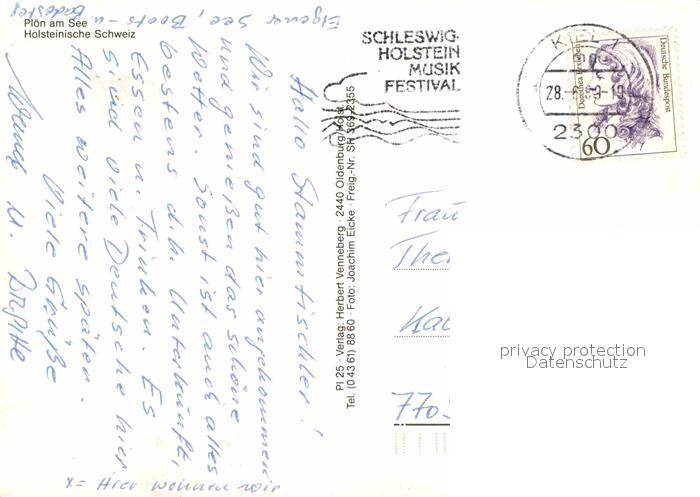 Plön am See
Holsteinische Schweiz
Eigener See, Boots- u.
Badesteg
Hallo Stammtischler!
Wir sind gut hier angekommen
und genießen das schöne
Wetter. Sonst ist auch alles
bestens d.h. Unterkunft,
Essen u. Trinken. Es
sind viele Deutsche hier.
Alles weitere später.
Viele Grüße
u. Brigitte
x = Hier wohnen wir
Pl 25 · Verlag: Herbert Venneberg · 2440 Oldenburg/Holst.
Tel. (0 43 61) 88 60 · Foto: Joachim Eicke · Freig.-Nr. SH 369/2355
SCHLESWIG-
HOLSTEIN
MUSIK
FESTIVAL
KIEL
2300
Deutsche Bundespost
60
Frau
770
privacy protection
Datenschutz